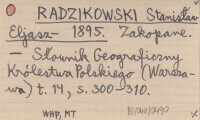 RADZIKOWSKI Stanisław
Eljasz - 1895. Zakopane.
— Słownik Geograficzny
Królestwa Polskiego (Warsza-
wa) t. 14, s. 300-310.
WHP, MT